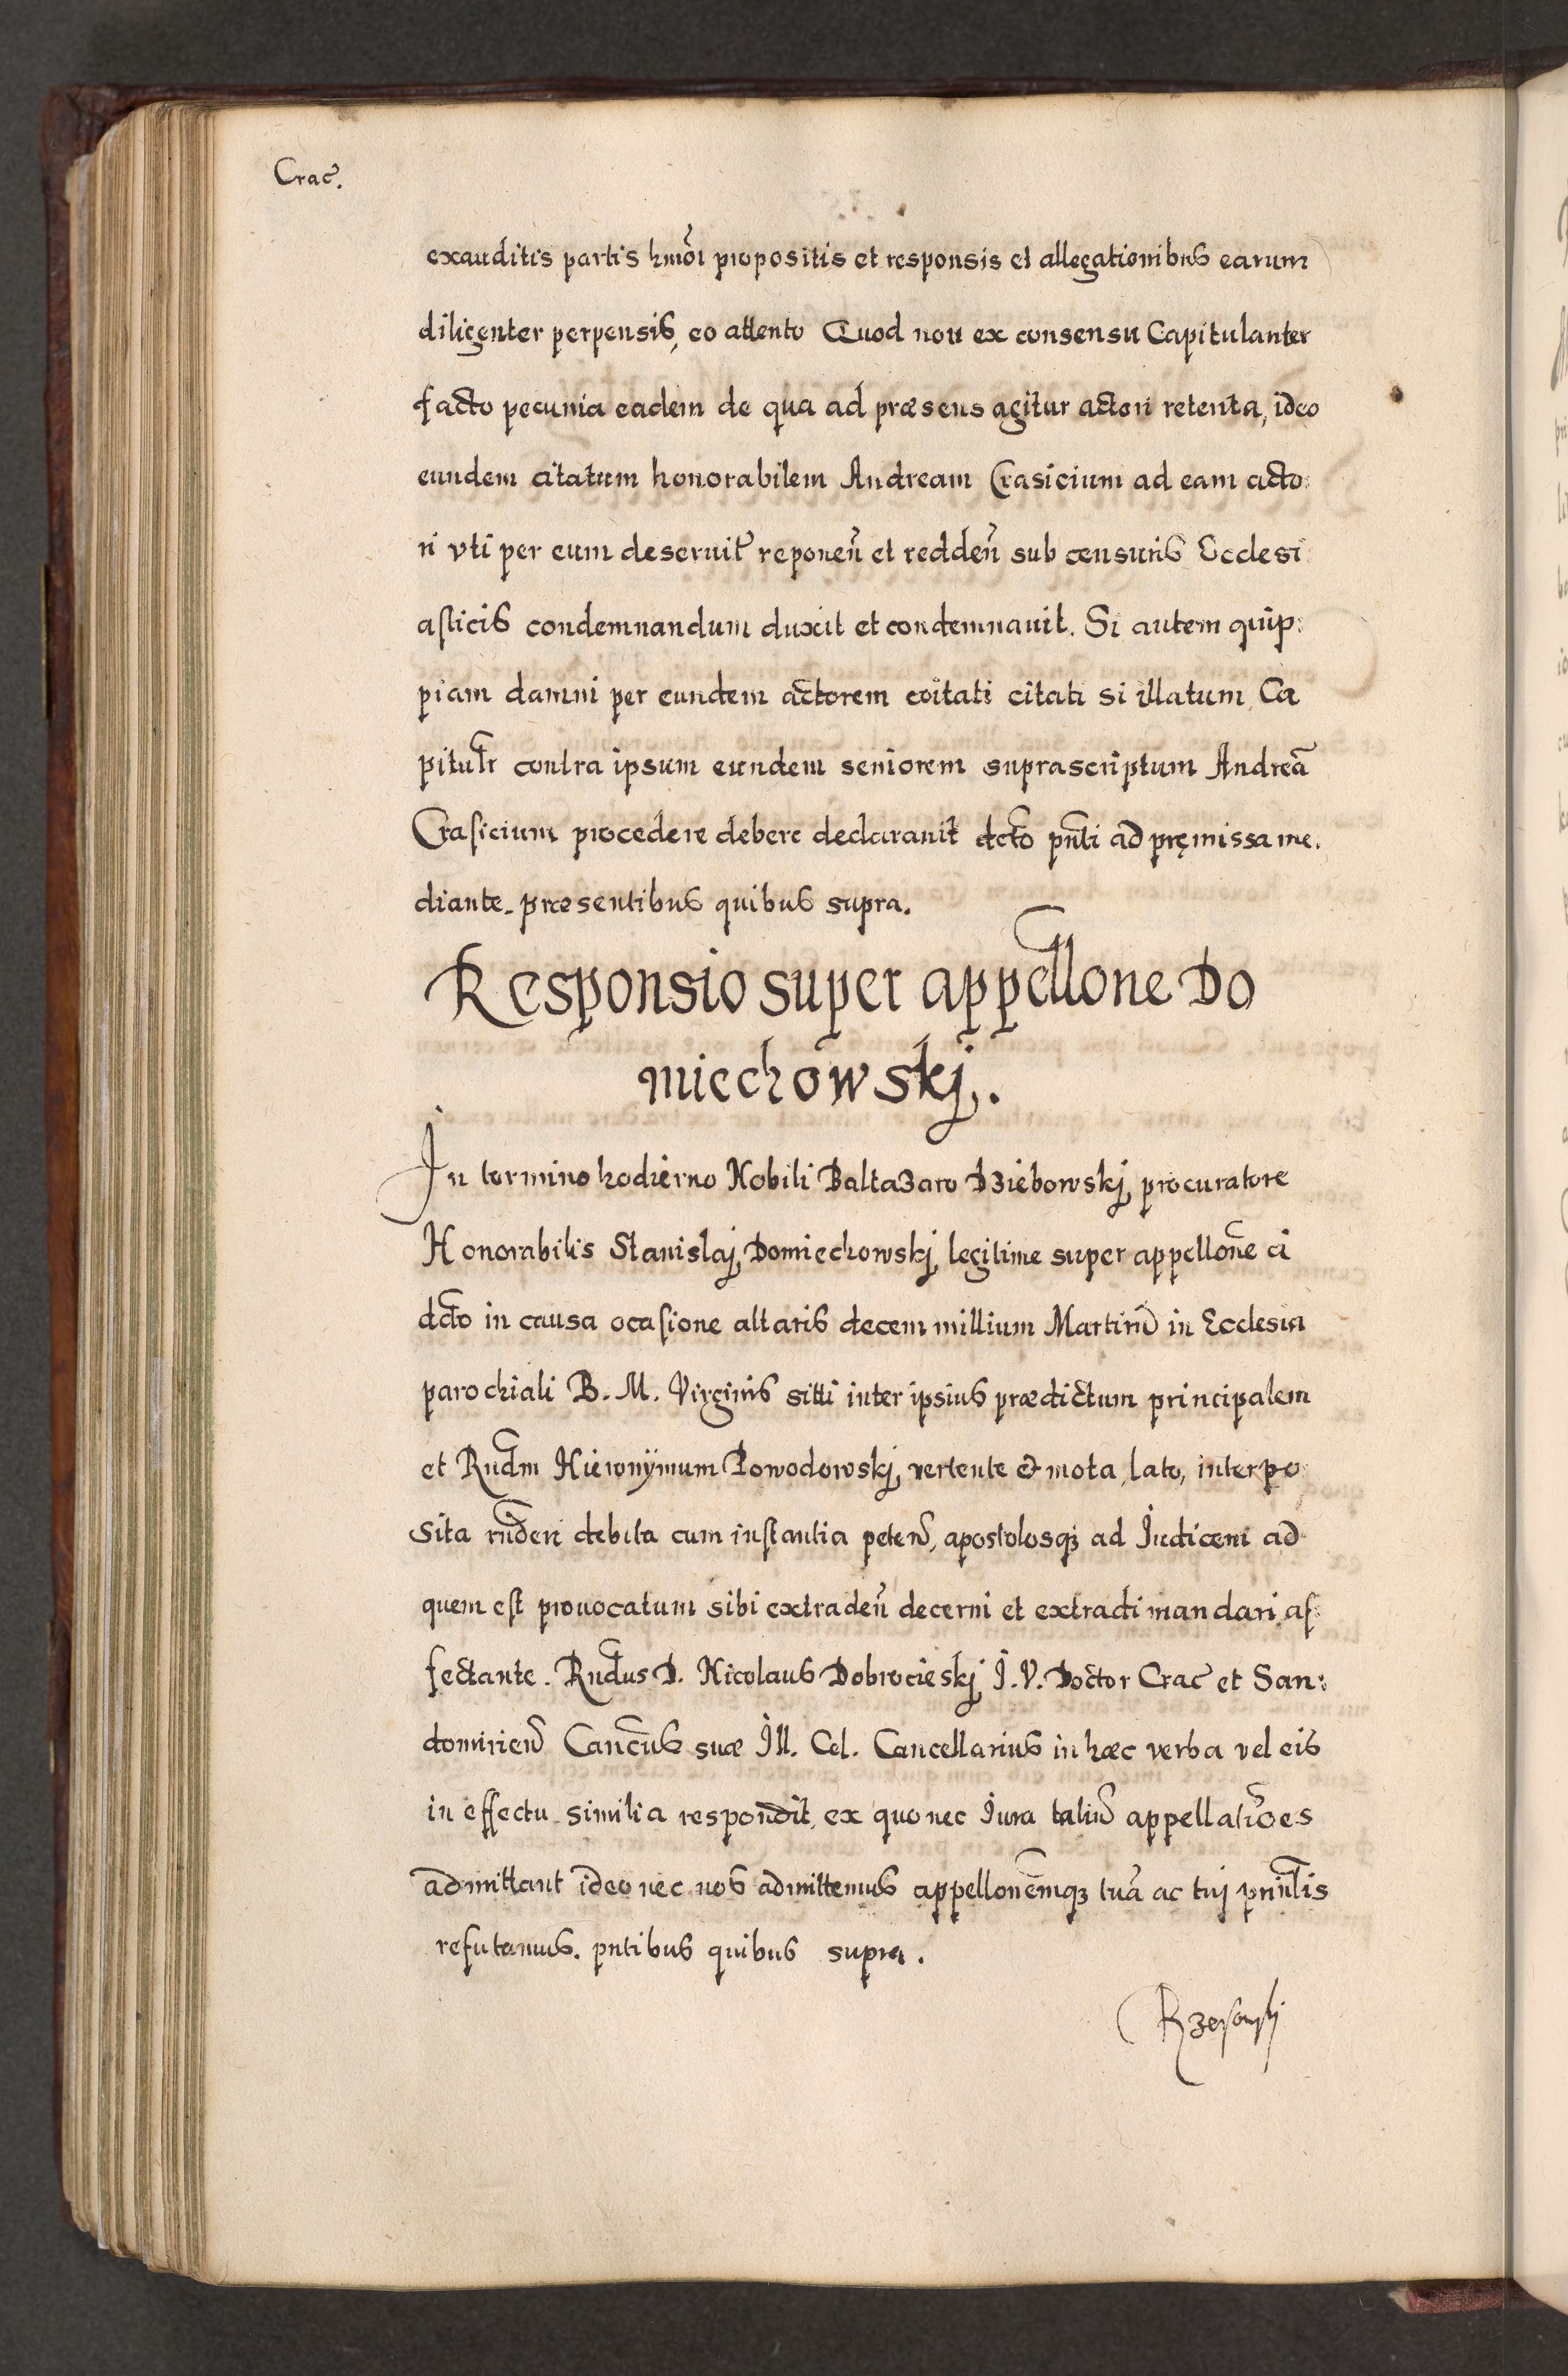 Crac̃.
exauditis partis hmõi propositis et responsis et allegationibus earum
diligenter perpensis, eo attento Quod non ex consensu Capitulanter
facto pecunia eadem de qua ad præsens agitur actori retenta, ideo
eundem citatum honorabilem Andream Crasicium ad eam acto:
ri vti per eum deseruit̃ reponen̄ et redden̄ sub censuris Ecclesi:
asticis condemnandum duxit et condemnauit. Si autem quip:
piam damni per eundem actorem cõitati citati si illatum, Ca
pitulr̃ contra ipsum eundem seniorem suprascriptum Andreã
Crasicium procedere debere declarauit dcto pn̄ti ad pręmissa me.
diante. præsentibus quibus supra.
Responsio super appellõne Do
miechowskj.
In termino hodierno Nobili Baltazaro Dziebowskj procuratore
Honorabilis Stanislaj Domiechowskj legitime super appellõne ci
dcto in causa ocasione altaris decem millium Martirũ in Ecclesia
parochiali B. M. Virginis sitti inter ipsius prædictum principalem
et Rndm̃ Hieronÿmum Powodowskj vertente et mota, lato, interpo:
sita rñderi debita cum instantia peten̄, apostolosqȝ ad Iudicem ad
quem est prouocatum sibi extraden̄ decerni et extradi mandari af:
fectante. Rndus̃ D. Nicolaus Dobrocieskj I. V. Doctor Crac̃ et San:
domirien̄ Cancũs suæ Ill. Cel. Cancellarius in hæc verba vel eis
in effectu similia respondit, ex quo nec Iura taliũ appellatiões
admittant ideo nec nos admittemus appellonẽmqȝ tuã ac tuj prñlis
refutamus. pntibus quibus supra.